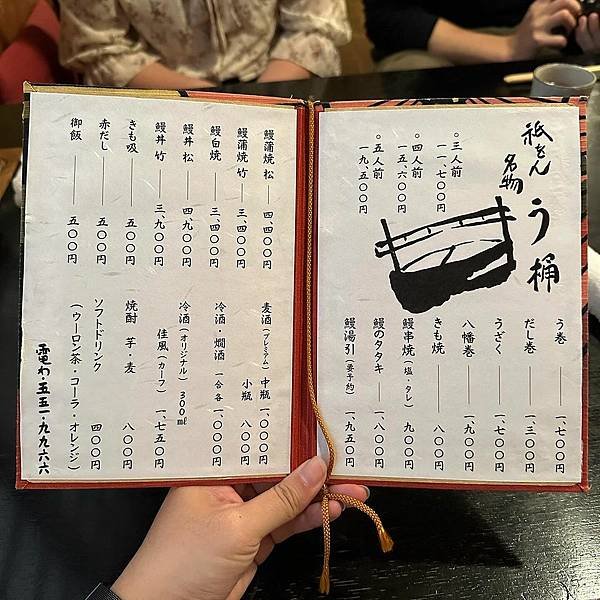 祇をん
名物
う桶
○三人前
一一、七〇〇円
○四人前
一五、六〇〇円
○五人前
一九、五〇〇円
う巻 一、七〇〇円
だし巻 一、三〇〇円
うざく 一、七〇〇円
八幡巻 一、七〇〇円
きも焼 八〇〇円
鰻串焼(塩・タレ) 九〇〇円
鰻のタタキ 一、八〇〇円
鰻湯引(要予約) 一、九五〇円
鰻蒲焼 松 四、四〇〇円
鰻蒲焼 竹 三、四〇〇円
鰻白焼 三、四〇〇円
鰻丼 松 四、九〇〇円
鰻丼 竹 三、九〇〇円
きも吸 五〇〇円
赤だし 五〇〇円
御飯 五〇〇円
麦酒(プレミアム) 中瓶 一、〇〇〇円
小瓶 八〇〇円
冷酒・燗酒 一合各 一、〇〇〇円
冷酒(オリジナル) 300㎖
佳風(カーフ) 一、七五〇円
焼酎 芋・麦 八〇〇円
ソフトドリンク 四〇〇円
(ウーロン茶・コーラ・オレンジ)
電わ・五五一・九九六六